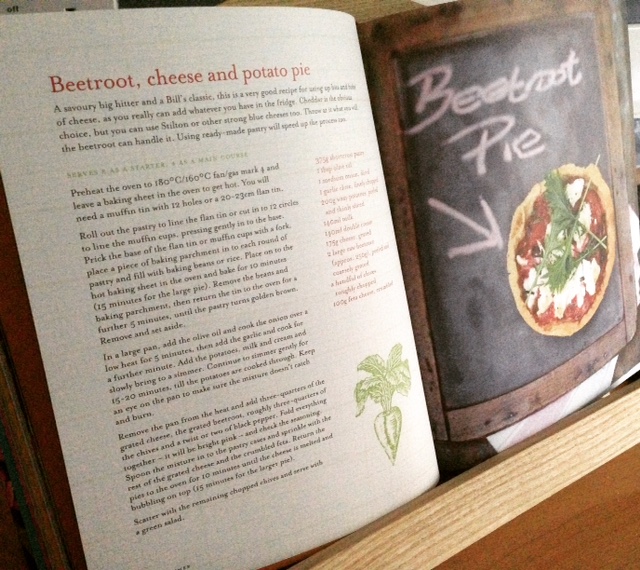 off
Beetroot, cheese and potato pie
A savoury big hitter and a Bill's classic, this is a very good recipe for using up lots and lots
of cheese, as you really can add whatever you have in the fridge. Cheddar is the obvious
choice, but you can use Stilton or other strong blue cheeses too. Throw at it what you will,
the beetroot can handle it. Using ready-made pastry will speed up the process too.
SERVES 8 AS A STARTER, AS A MAIN COURSE
Preheat the oven to 180°C/160°C fan/gas mark 4 and
leave a baking sheet in the oven to get hot. You will
need a muffin tin with 12 holes or a 20–23cm flan tin.
Roll out the pastry to line the flan tin or cut in to 12 circles
to line the muffin cups, pressing gently in to the base.
Prick the base of the flan tin or muffin cups with a fork,
place a piece of baking parchment in to each round of
pastry and fill with baking beans or rice. Place on to the
hot baking sheet in the oven and bake for 10 minutes
(15 minutes for the large pie). Remove the beans and
baking parchment, then return the tin to the oven for a
further 5 minutes, until the pastry turns golden brown.
Remove and set aside.
In a large pan, add the olive oil and cook the onion over a
low heat for 5 minutes, then add the garlic and cook for
a further minute. Add the potatoes, milk and cream and
slowly bring to a simmer. Continue to simmer gently for
15–20 minutes, till the potatoes are cooked through. Keep
an eye on the pan to make sure the mixture doesn't catch
and burn.
Remove the pan from the heat and add three-quarters of the
grated cheese, the grated beetroot, roughly three-quarters of
the chives and a twist or two of black pepper. Fold everything
together – it will be bright pink – and check the seasoning.
Spoon the mixture in to the pastry cases and sprinkle with the
rest of the grated cheese and the crumbled feta. Return the
pies to the oven for 10 minutes until the cheese is melted and
bubbling on top (15 minutes for the larger pie).
Scatter with the remaining chopped chives and serve with
a green salad.
375g shortcrust pastry
1 tbsp olive oil
1 medium onion, diced
1 garlic clove, finely chopped
200g potatoes, peeled
and thinly sliced
150ml milk
150ml double cream
175g cheese, grated
2 large raw beetroot
(approx. 250g), peeled and
coarsely grated
a handful of chives,
roughly chopped
100g feta cheese, crumbled
Beetroot
Pie